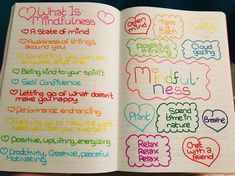 What Is
Mindfulness
A state of mind
Awareness of things
around you
Something you can do
Being kind to your spirit
Self Confidence
Letting go of what doesn't
make you happy
Performance enchanding
Letting go of
Positive, uplifting, energizing
Productivity, Creative, peaceful
Motivating
open
mind
Take a
Bath
Positive
thinking
Cloud
gazing
Mindful-
ness
Spend
time in
nature
Relax
Relax
Relax
Chat
with a
friend